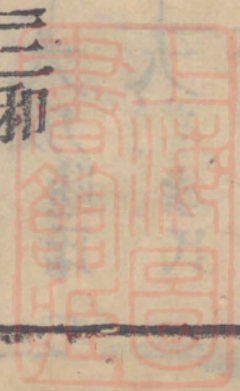 三和
上海圖
書館藏